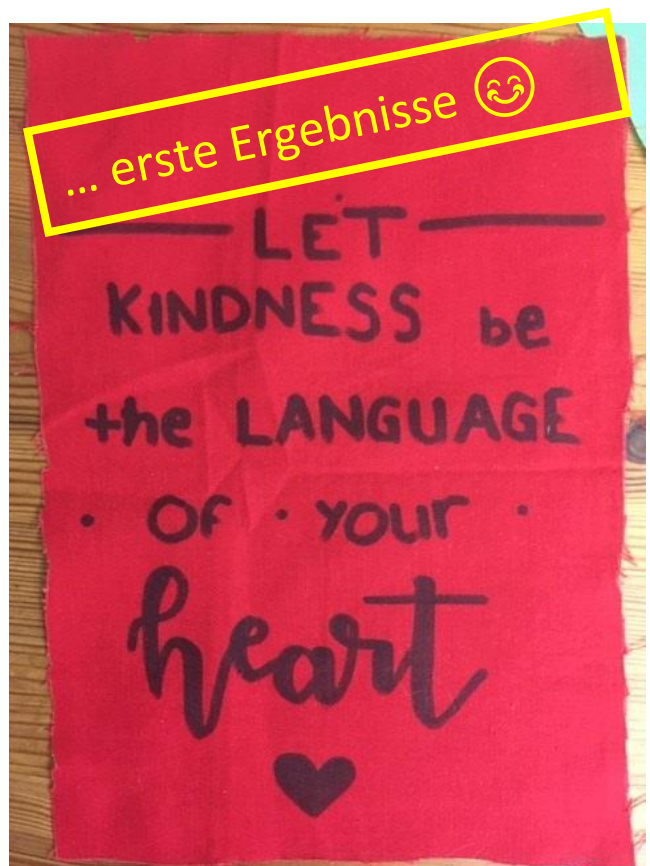 ... erste Ergebnisse 😊
LET
KINDNESS be
the LANGUAGE
· OF · your ·
heart